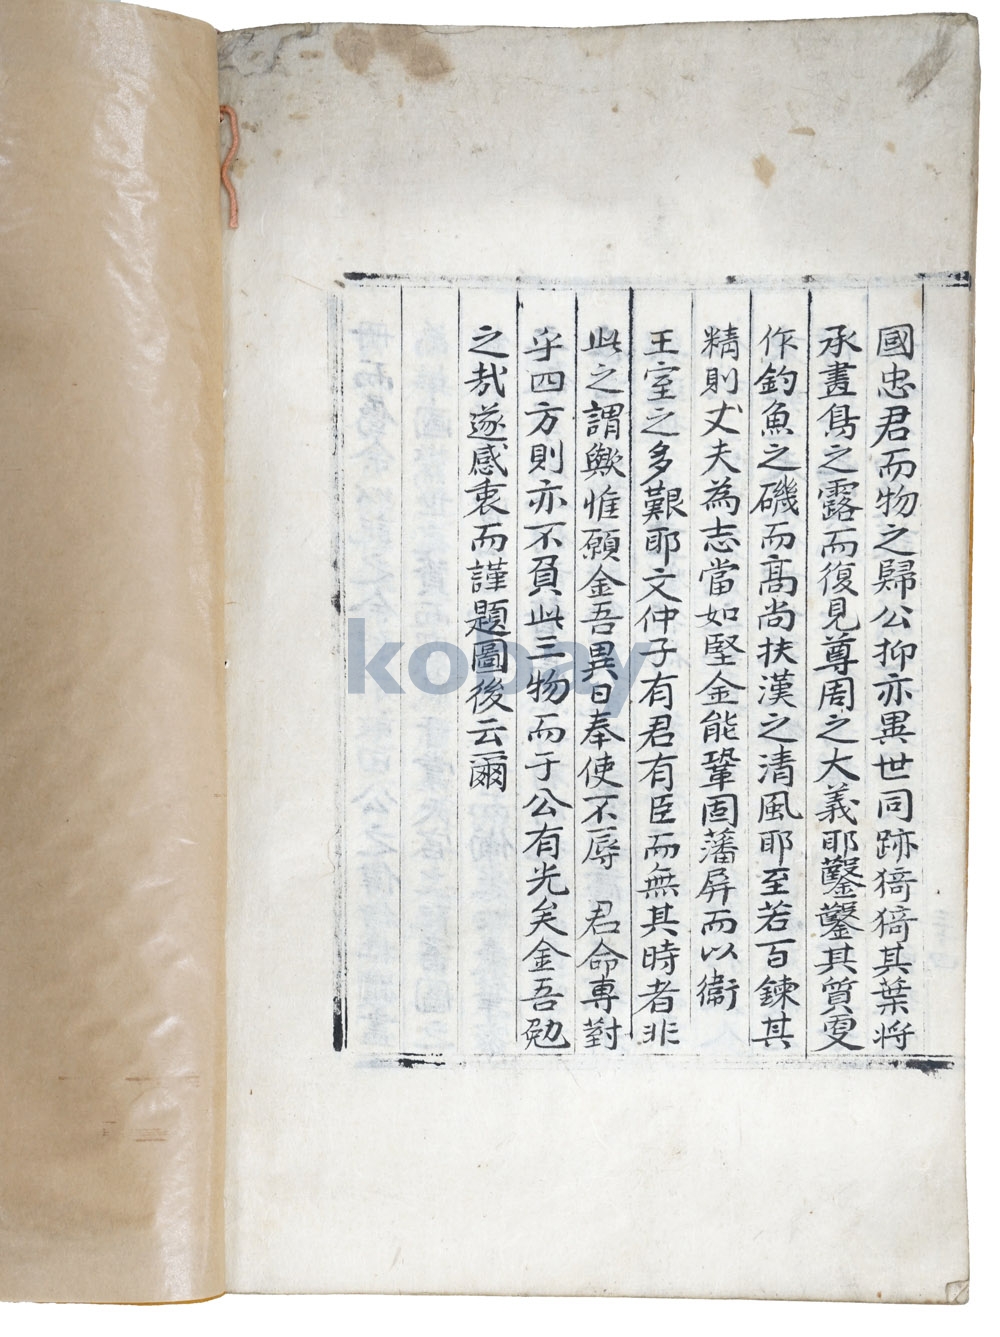 國忠君而物之歸公抑亦異世同跡猗猗其葉將
承晝鳥之露而復見尊周之大義耶鑿鑿其質更
作釣魚之磯而高尚扶漢之清風耶至若百鍊其
精則丈夫為志當如堅金能鞏固藩屏而以衞
王室之多艱耶文仲子有君有臣而無其時者非
此之謂歟惟願金吾異日奉使不辱 君命專對
乎四方則亦不負此三物而于公有光矣金吾勉
之哉遂感衷而謹題圖後云爾
kobay